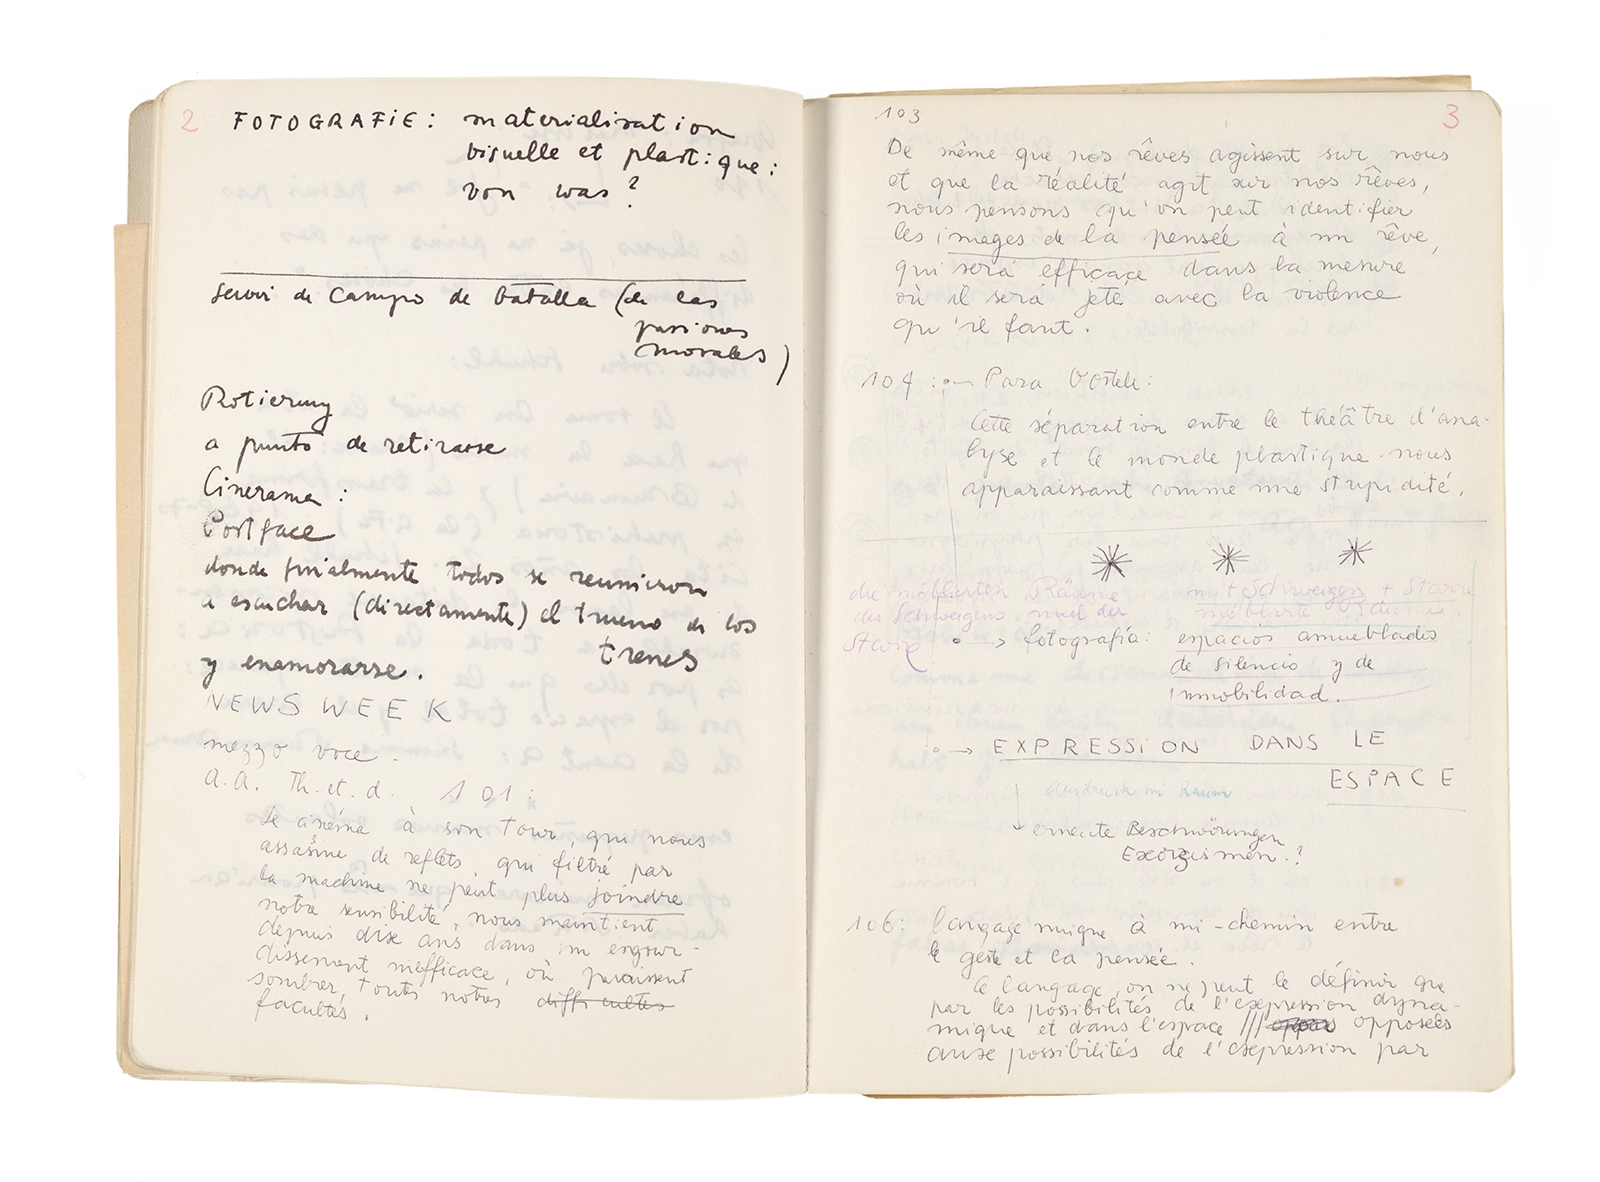 2
FOTOGRAFIE: materialisation
visuelle et plastique:
von was?
servi de campo de batalla (de las
pasiones
morales)
Rotierung
a punto de retirarse
Cinerama:
Postface
donde finalmente todos se reunieron
a escuchar (directamente) el trueno de los
trenes
y enamorarse.
NEWSWEEK
mezzo voce.
A.A. Th. et. d. 101:
Le cinéma à son tour, qui nous
assasine de reflets, qui filtré par
la machine ne peut plus joindre
notre sensibilité, nous maintient
depuis dix ans dans un engour-
dissement inefficace, où paraissent
sombrer, toutes notres difficultés
facultés.
103
3
De même que nos rêves agissent sur nous
et que la réalité agit sur nos rêves,
nous pensons qu'on peut identifier
les images de la pensée à un rêve,
qui sera efficace dans la mesure
où il sera jeté avec la violence
qu'il faut.
104: Para Vostell:
Cette séparation entre le théâtre d'ana-
lyse et le monde plastique nous
apparaissant comme une stupidité.
die möblierten Räume
des Schweigens und der
Starre
mit Schweigen + Starre
möblierte Räume.
→ fotografía: espacios amueblados
de silencio y de
inmobilidad.
→ EXPRESSION DANS LE
ESPACE
Ausdruck im Raum
erneute Beschwörungen
Exorzismen.?
106: langage unique à mi-chemin entre
le geste et la pensée.
Ce langage, on ne peut le définir que
par les possibilités de l'expression dyna-
mique et dans l'espace opposées
aux possibilités de l'expression par